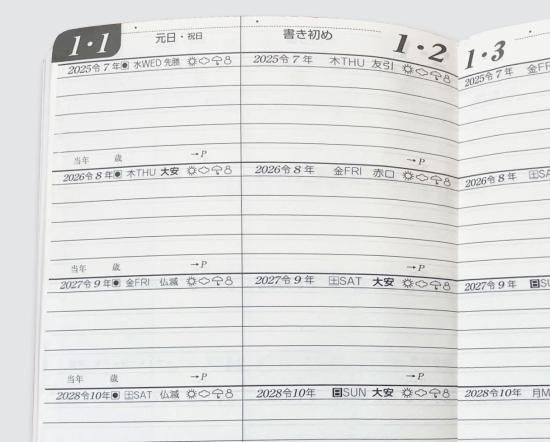 1・1 元日・祝日 書き初め 1・2 1・3
2025令7年 水WED 先勝 2025令7年 木THU 友引 2025令7年 金FR
当年 歳 →P →P
2026令8年 木THU 大安 2026令8年 金FRI 赤口 2026令8年 土SA
当年 歳 →P →P
2027令9年 金FRI 仏滅 2027令9年 土SAT 大安 2027令9年 日SU
当年 歳 →P →P
2028令10年 土SAT 仏滅 2028令10年 日SUN 大安 2028令10年 月M